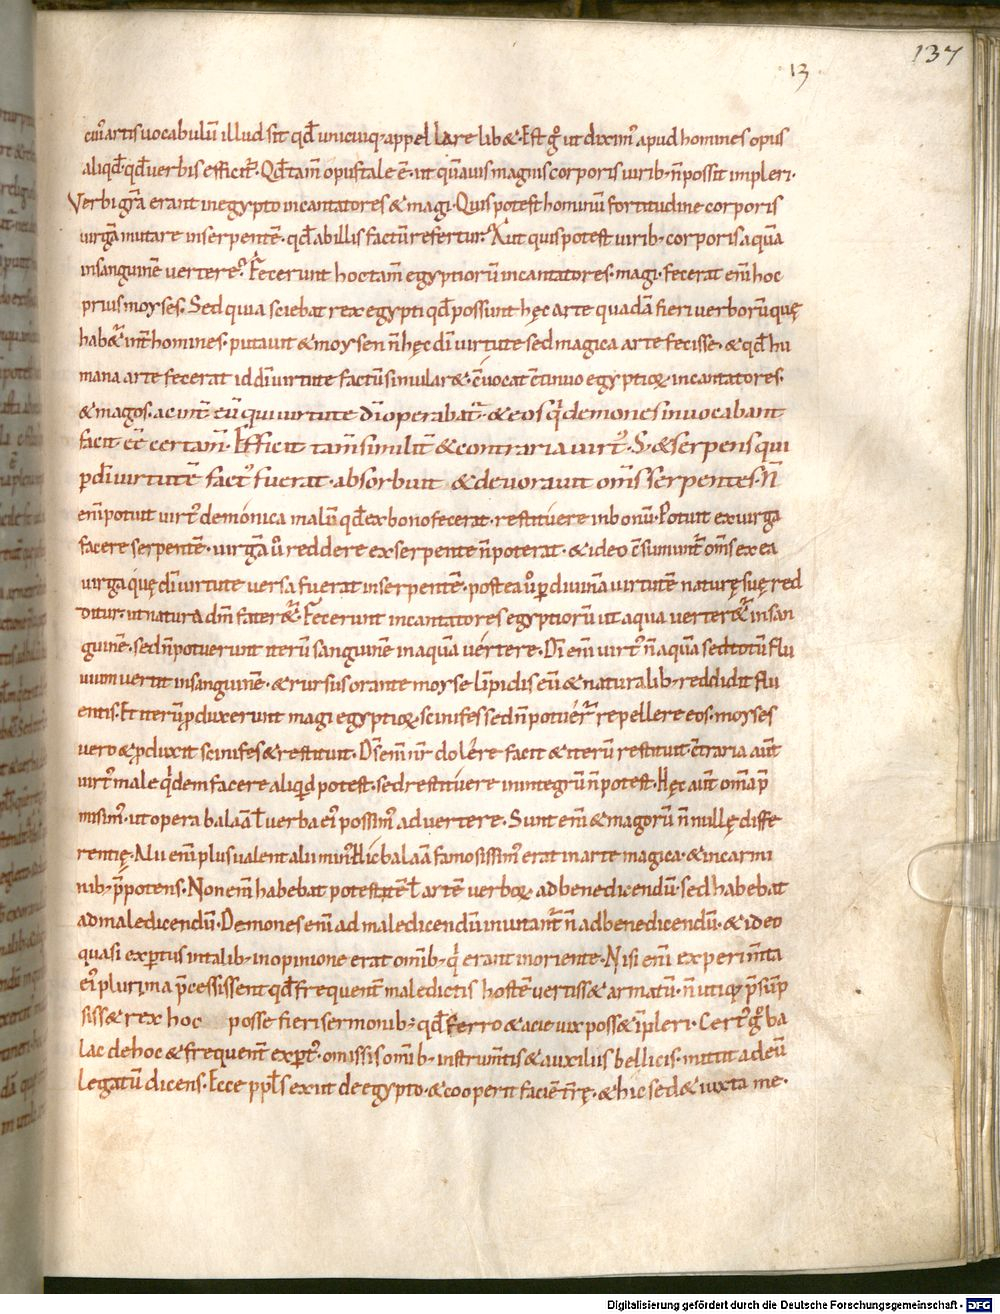 137
13
cuī artis uocabulū illud sit qd̄ unicuiq; appellare lib&. Est g̊ ut diximꝰ apud homines opus
aliqd̄. qd̄ uerbis efficit̄. Qd̄ tam̄ opus tale ē. ut quāuis magnis corporis uirib; n̄ possit impleri.
Verbi gr̄a erant in egypto incantatores & magi. Quis potest hominū fortitudine corporis
uirgā mutare in serpentē. qd̄ ab illis factū refertur? Aut quis potest uirib; corporis aquā
in sanguinē uertere? Fecerunt hoc tam̄ egyptiorū incantatores. magi. fecerat eni̅ hoc
prius moyses. Sed quia sciebat rex egypti qd̄ possunt hęc arte quadā fieri uerborū quę
hab&̄ int̄ homines. putauit & moysen n̄ hęc dī uirtute sed magica arte fecisse. & qd̄ hu
mana arte fecerat id dī uirtute factū simular&. c̄uocat c̄tinuo egyptioꝝ incantatores.
& magos. ac int̄ eū qui uirtute dī operabat̄. & eos qͥ demones inuocabant
facit eē certam̄. Efficit tam̄ similit̄ & contraria uirtꝰ. S; & serpens qui
p dī uirtutē factꝰ fuerat. absorbuit & deuorauit om̄s serpentes. N̄
eni̅ potuit uirtꝰ demonica malū qd̄ ex bono fecerat. restituere in bonū. Potuit ex uirga
facere serpentē. uirgā u̅ reddere ex serpente n̄ poterat. & ideo c̄sumunt̄ om̄s ex ea
uirga quę dī uirtute uersa fuerat in serpentē. postea u̅ p diuinā uirtutē naturę suę red
ditur. ut natura dn̄m fater&̄. Fecerunt incantatores egyptiorū ut aqua uerter&̄ in san
guinē. sed n̄ potuerunt iterū sanguinē in aquā uertere. Dī eni̅ uirtꝰ n̄ aquā sed totū flu
uium uertit in sanguinē. & rursus orante moyse līpidis eū & naturalib; reddidit flu
entis. Et iterū pduxerunt magi egyptioꝝ. scinifes sed n̄ potuer̄ repellere eos. moyses
uero & pduxit scinifes & restituit. Dī eni̅ uir̄ dolere facit & iterū restituit. c̄traria aut̄
uirtꝰ male qͥdem facere aliqͥd potest. sed restituere in integrū n̄ potest. Hęc aut̄ om̄a p̄
misimꝰ. ut opera balaā ł uerba eiꝰ possimꝰ aduertere. Sunt eni̅ & magorū n̄ nullę diffe
rentię. Alii eni̅ plus ualent alii minꝰ. Hic balaā famosissimꝰ erat in arte magica. & in carmi
nib; p̄potens. Non eni̅ habebat potestatē ł artē uerboꝝ ad benedicendū. sed habebat
ad maledicendū. Demones eni̅ ad maledicendū inuitant̄ n̄ ad benedicendū. & ideo
quasi exptus in talib; in opinione erat omib; qͥ erant in oriente. Nisi eni̅ experim̄ta
eiꝰ plurima p̄cessissent qd̄ frequent̄ maledictis hostē uertiss& armatū. n̄ utiq; p̄sūp
siss& rex hoc posse fieri sermonib; qd̄ ferro & acie uix poss& īpleri. Certꝰ g̊ ba
lac de hoc & frequent̄ exptꝰ. omissis omib; instrum̄tis & auxiliis bellicis. mittit ad eū
legatū dicens. Ecce ppl̄s exiit de egypto. & cooperit faciē t̄rę. & hic sed& iuxta me.
Digitalisierung gefördert durch die Deutsche Forschungsgemeinschaft - DFG